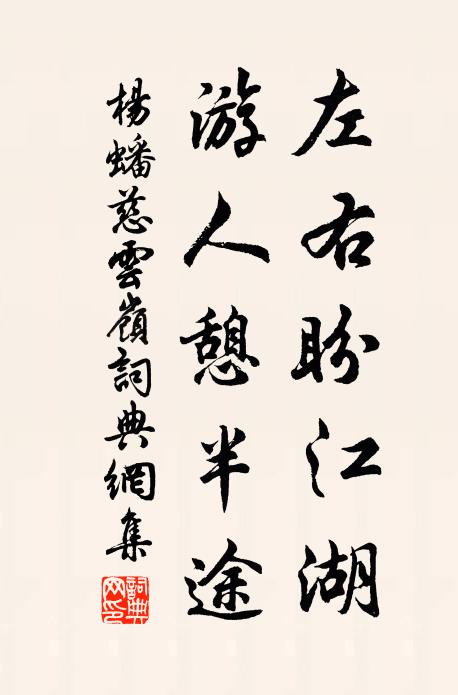 左右盼江湖
游人憩半途
楊蟠慈雲嶺詞典網集